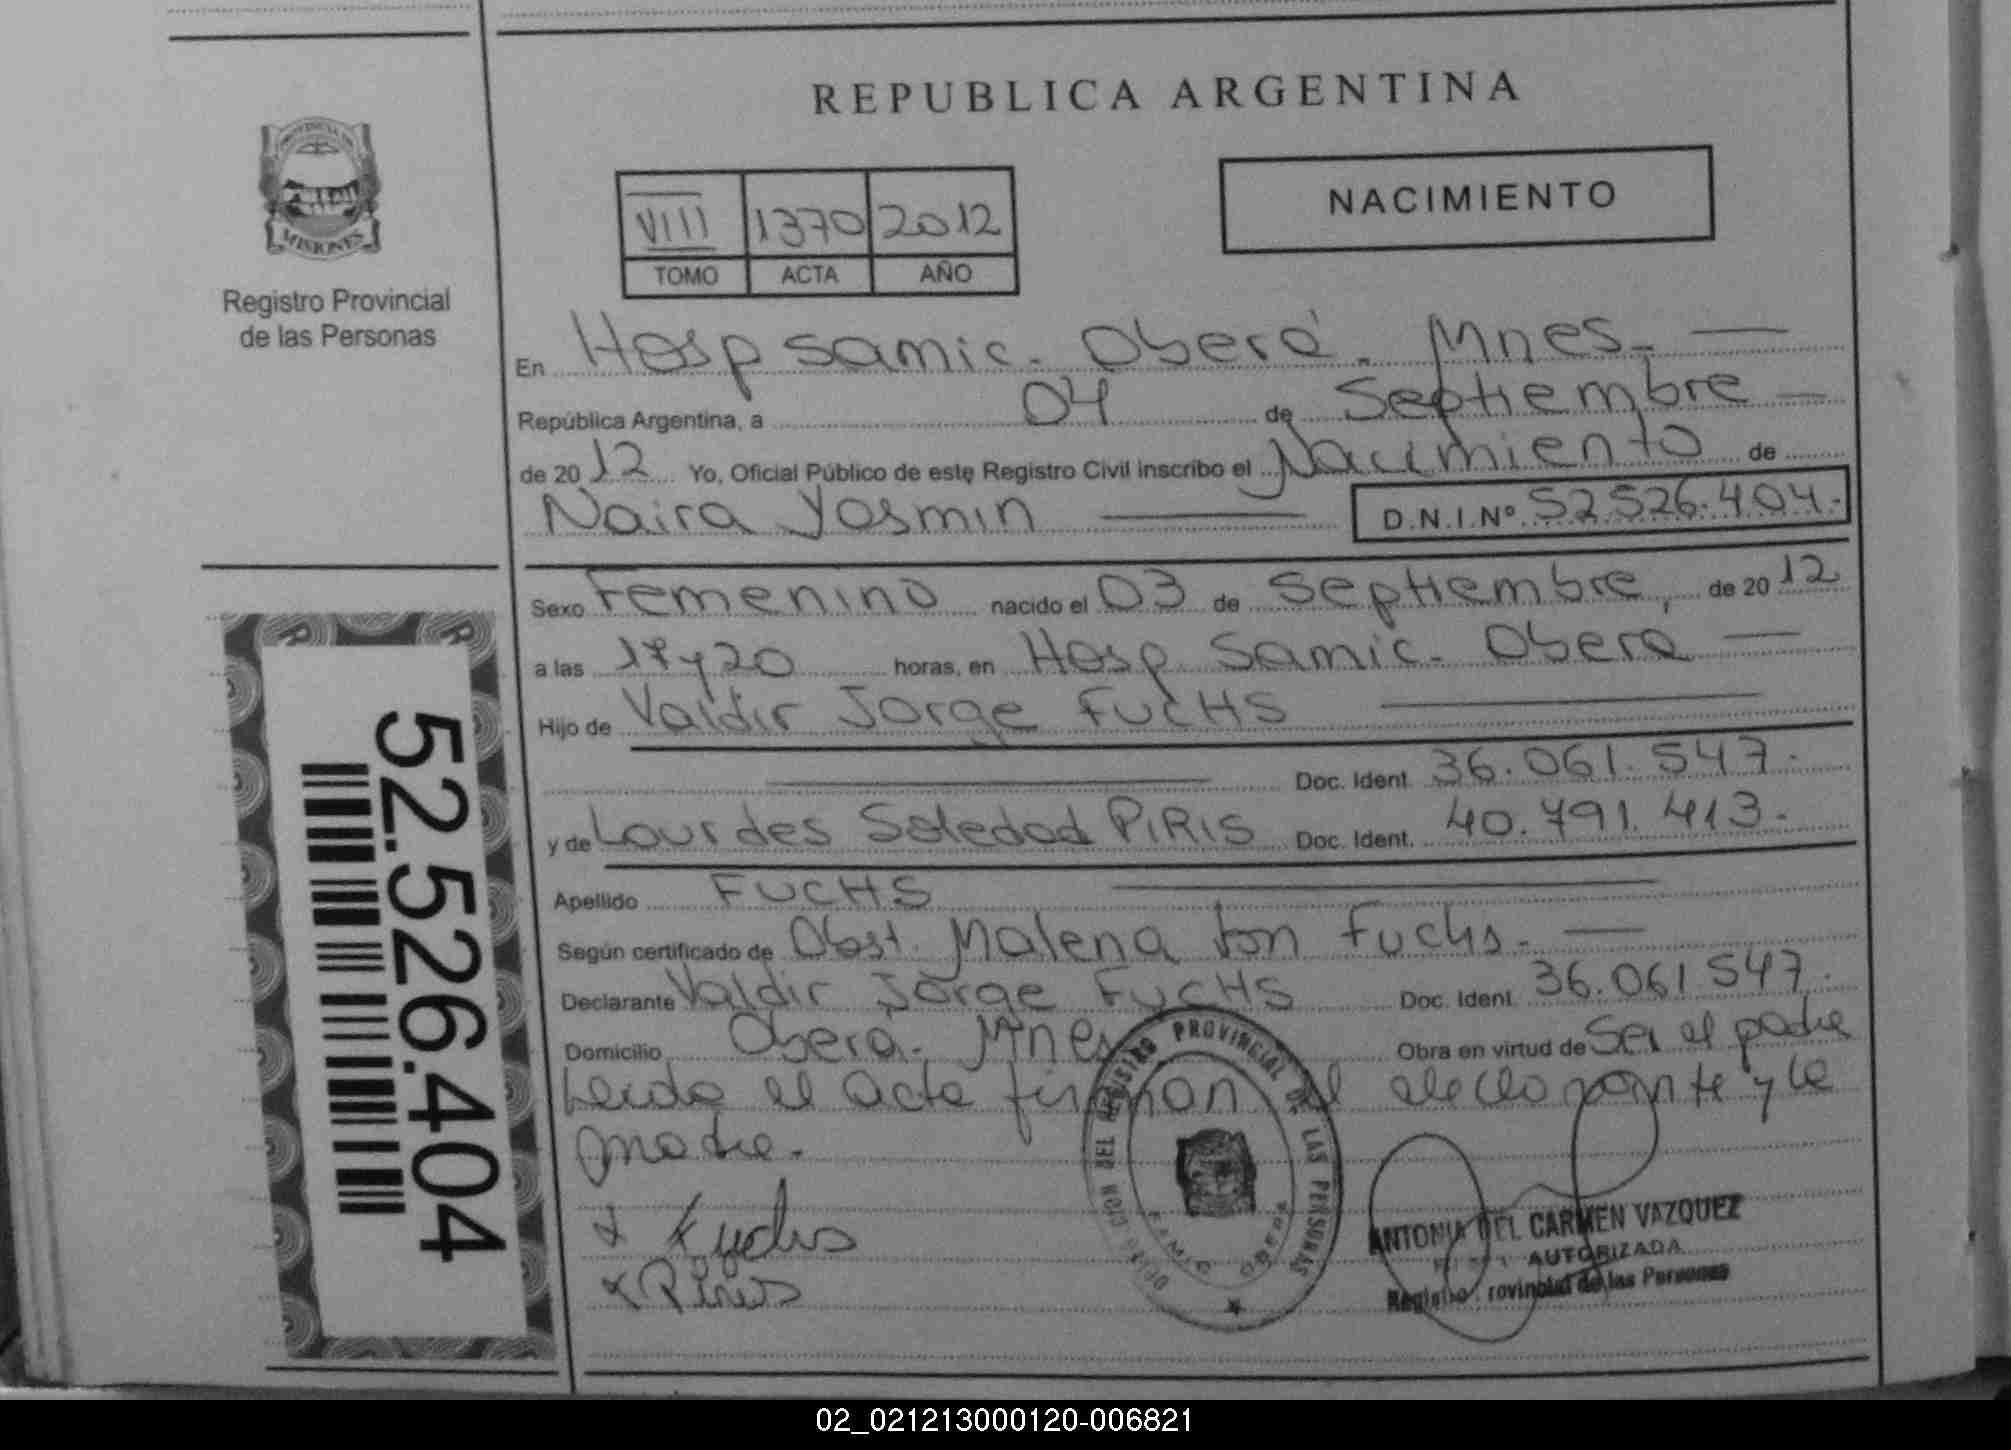 REPUBLICA ARGENTINA
PROVINCIA DE
MISIONES
Registro Provincial
de las Personas
VIII 1370 2012
TOMO ACTA AÑO
NACIMIENTO
En Hosp samic. Oberá. Mnes.
República Argentina, a 04 de Septiembre
de 2012 Yo, Oficial Público de este Registro Civil inscribo el Nacimiento de
Naira Yasmin D.N.I.Nº 52.526.404.
Sexo Femenino nacido el 03 de Septiembre, de 2012
a las 17 y 20 horas, en Hosp. Samic. Obera
Hijo de Valdir Jorge FUCHS
Doc. Ident. 36.061.547.
y de Lourdes Soledad PIRIS Doc. Ident. 40.791.413.
Apellido FUCHS
Según certificado de Obst. Malena Von Fuchs.
Declarante Valdir Jorge FUCHS Doc. Ident. 36.061.547.
Domicilio Oberá. Mnes Obra en virtud de Ser el padre
Leida el acta firman el declarante y la
madre.
x Fuchs
x Piris
52.526.404
DEL REGISTRO PROVINCIAL DE LAS PERSONAS
ANTONIA DEL CARMEN VAZQUEZ
AUTORIZADA
Registro Provincial de las Personas
02_021213000120-006821